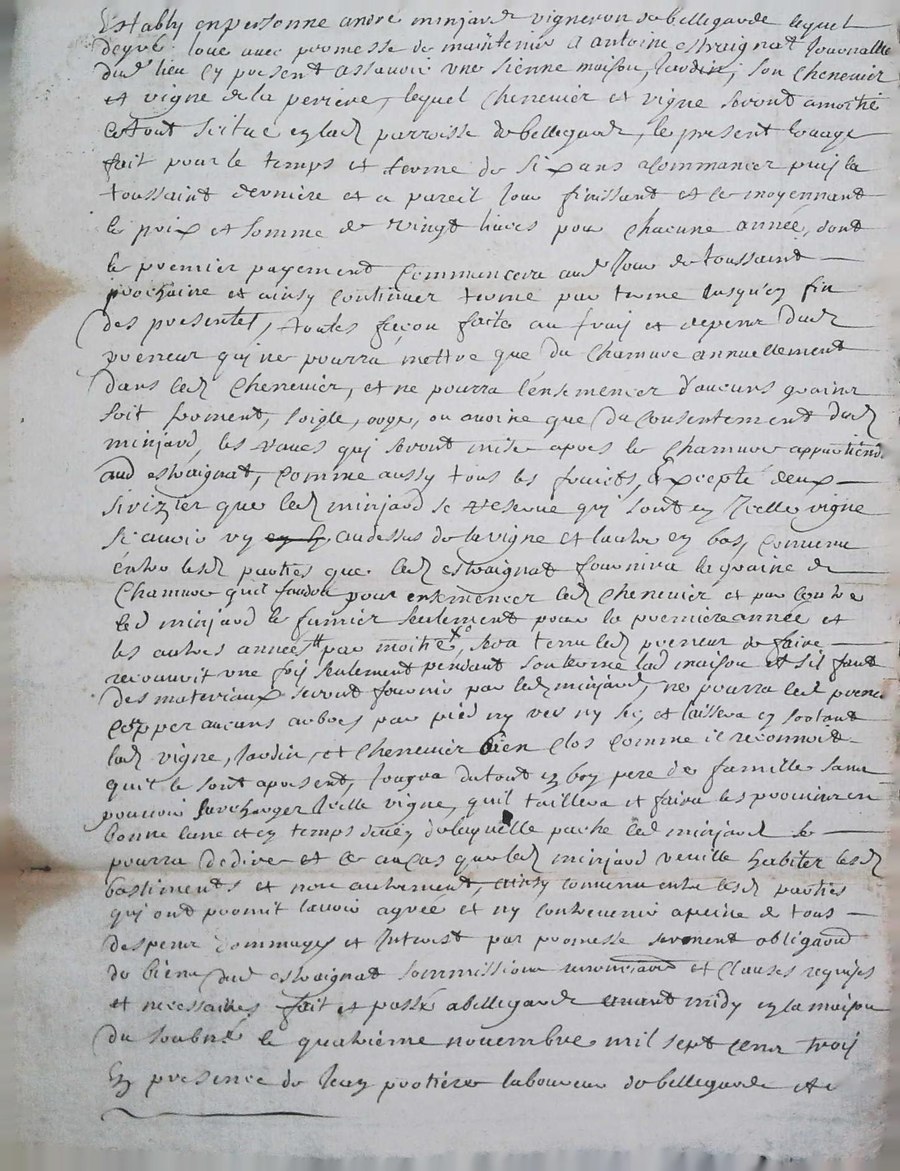 Estably en personne andré minjard vigneron de bellegarde lequel
degré loue avec promesse de maintenir a antoine estraignat Journallier
dud lieu cy present assavoir une sienne maison, Jardin, son chenevier
et vigne de la perriere, lequel chenevier et vigne seront a moitié
le tout situé en lad parroisse de bellegarde, le present louage
fait pour le temps et terme de six ans a commancer puis la
toussaint derniere et a pareil Jour finissant et ce moyennant
le prix et somme de vingt livres pour chacune année, dont
le premier payement commencera aud Jour de toussaint
prochaine et ainsy continuer terme par terme Jusqu'en fin
des presentes, toutes façon faite au frais et depens dud
preneur qui ne pourra mettre que du chamvre annuellement
dans led chenevier, et ne pourra l'ensemencer d'aucuns grains
soit froment, soigle, orge, ou avoine que du consentement dud
minjard, les raves qui seront mise apres le chamvre appartiend
aud estraignat, comme aussy tous les fruicts, excepté deux
sirizier que led minjard se reserve qui sont en Jcelle vigne
scavoir un au dessus de la vigne et lautre en bas, convenu
entre lesd parties que led estraignat fournira la graine de
chamvre quil faudra pour ensemencer led chenevier et par contre
led minjard le fumier seulement pour la premiere année et
les autres années par moitié, sera tenu led preneur de faire
recouvrir une fois seulement pendant son terme lad maison et sil faut
des materiaux seront fournir par led minjard, ne pourra led preneur
copper aucuns arbres par pied ny ver ny sec, et laissera en sortant
lad vigne, Jardin, et chenevier bien clos comme il reconnoit
quil le sont apresent, Jougra du tout en bon pere de famille sans
pouvoir surcharger Jcelle vigne, quil taillera et faira les provins en
bonne lune et en temps de laquelle pache led minjard se
pourra dedire et ce au cas que led minjard veuille habiter lesd
bastiments et non autrement, ainsy convenu entre lesd parties
qui ont promit lavoir agréé et ny contrevenir a peine de tous
despens dommages et Jnterest par promesse serment obligaon
de biens dud estraignat sommissions renonciaons et clauses requises
et necessaires fait et passé a bellegarde avant midy en la maison
du soubné le quatrieme novembre mil sept cens trois
En presence de Jean laboureur de bellegarde et